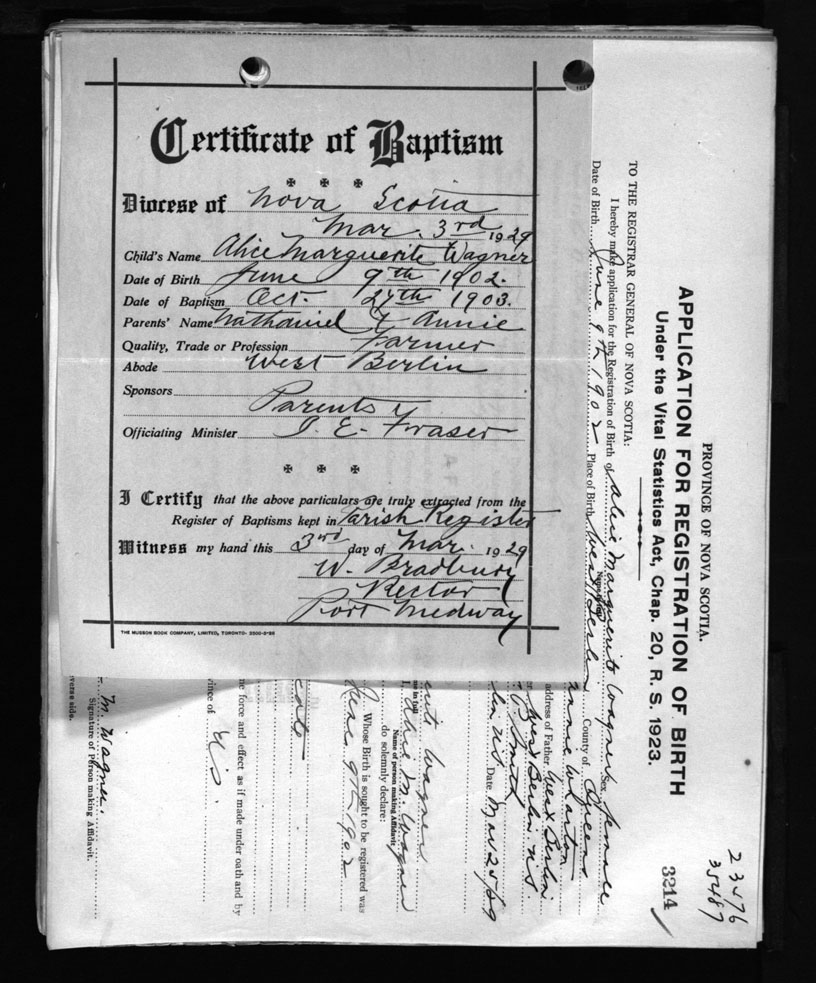 Certificate of Baptism
Diocese of Nova Scotia
Mar. 3rd 1929
Child's Name Alice Marguerite Wagner
Date of Birth June 9th 1902.
Date of Baptism Oct. 27th 1903.
Parents' Name Nathaniel & Annie
Quality, Trade or Profession Farmer
Abode West Berlin
Sponsors
Parents
Officiating Minister I. E. Fraser
I Certify that the above particulars are truly extracted from the
Register of Baptisms kept in Parish Register
Witness my hand this 3rd day of Mar. 1929
W. Bradbury
Rector
Port Medway
THE MUSSON BOOK COMPANY, LIMITED, TORONTO-
PROVINCE OF NOVA SCOTIA.
APPLICATION FOR REGISTRATION OF BIRTH
Under the Vital Statistics Act, Chap. 20, R. S. 1923.
23476
35487
3214
TO THE REGISTRAR GENERAL OF NOVA SCOTIA:
I hereby make application for the Registration of Birth of Alice Marguerite Wagner Sex Female
Date of Birth June 9th 1902 Place of Birth West Berlin County of Queens
Annie Wharton
address of Father West Berlin
West Berlin N.S.
Smith
Date Mar 25/29
Wagner
me in full
I, Alice M. Wagner
Name of person making Affidavit.
do solemnly declare:
Whose Birth is sought to be registered was
June 9th 1902
me force and effect as if made under oath and by
vince of N.S.
M. Wagner.
Signature of Person making Affidavit.
verse side.